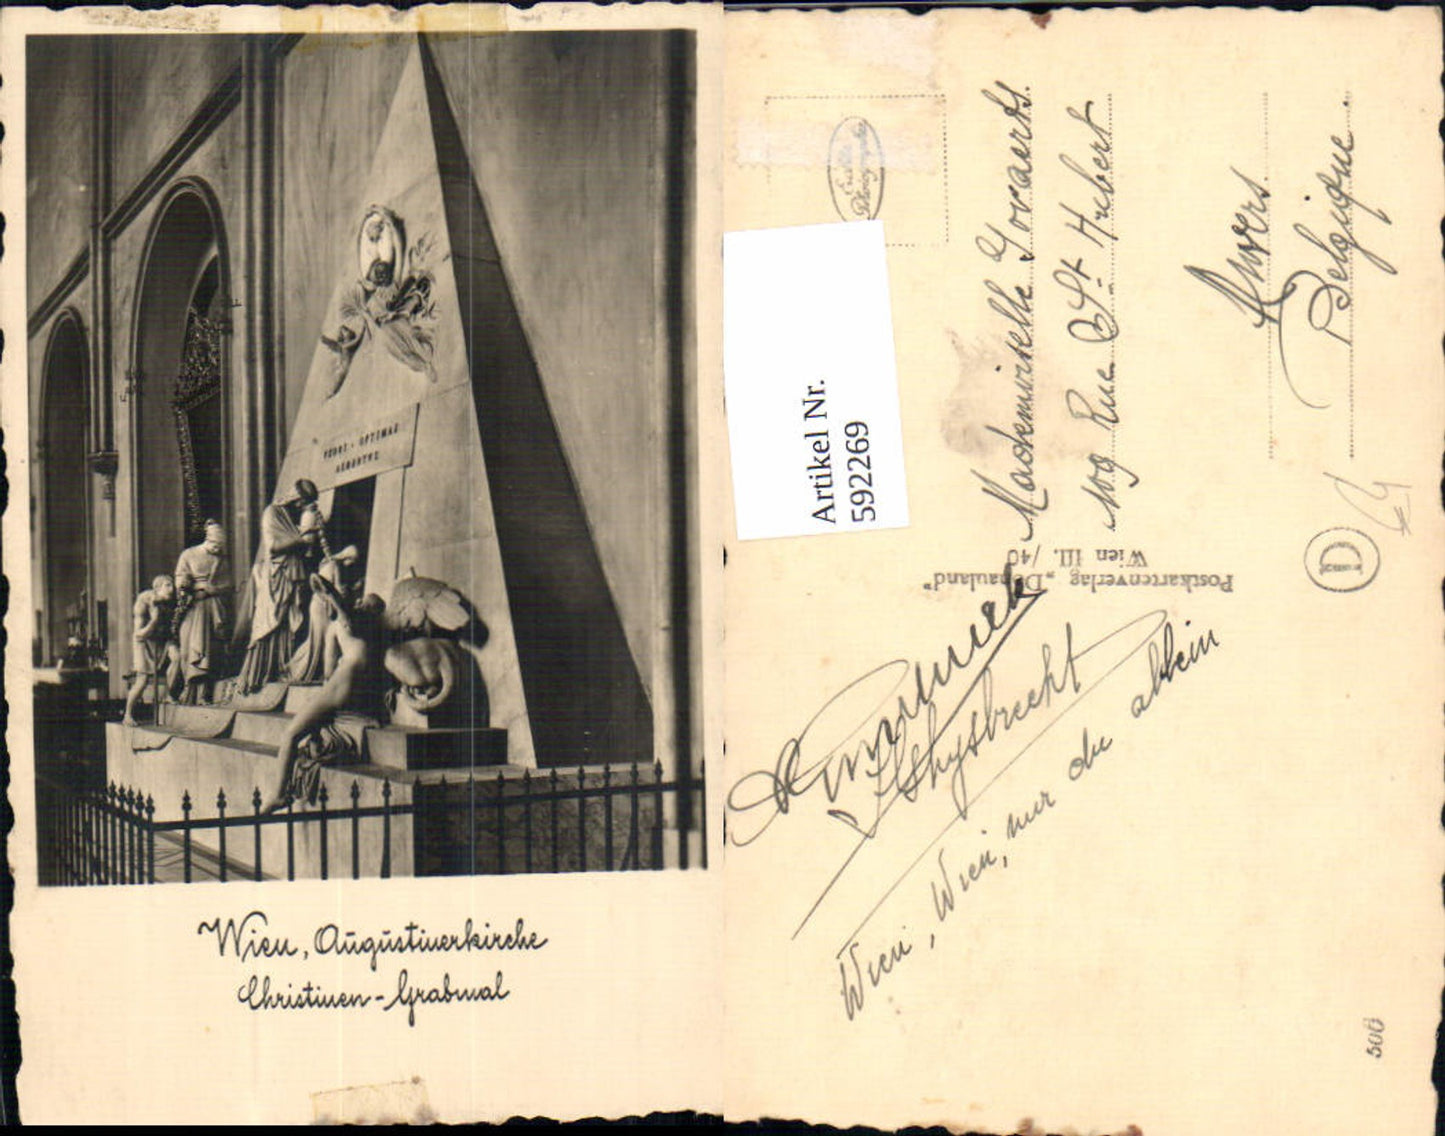 UXORI · OPTIMAE
ALBERTUS
Wien, Augustinerkirche
Christinen-Grabmal
Artikel Nr.
592269
Echte
Mademoiselle Govaerts.
109 Rue St Hubert
Anvers
Belgique.
Postkartenverlag „Donauland"
Wien III. /40
D
Wien, Wien, nur du allein
500